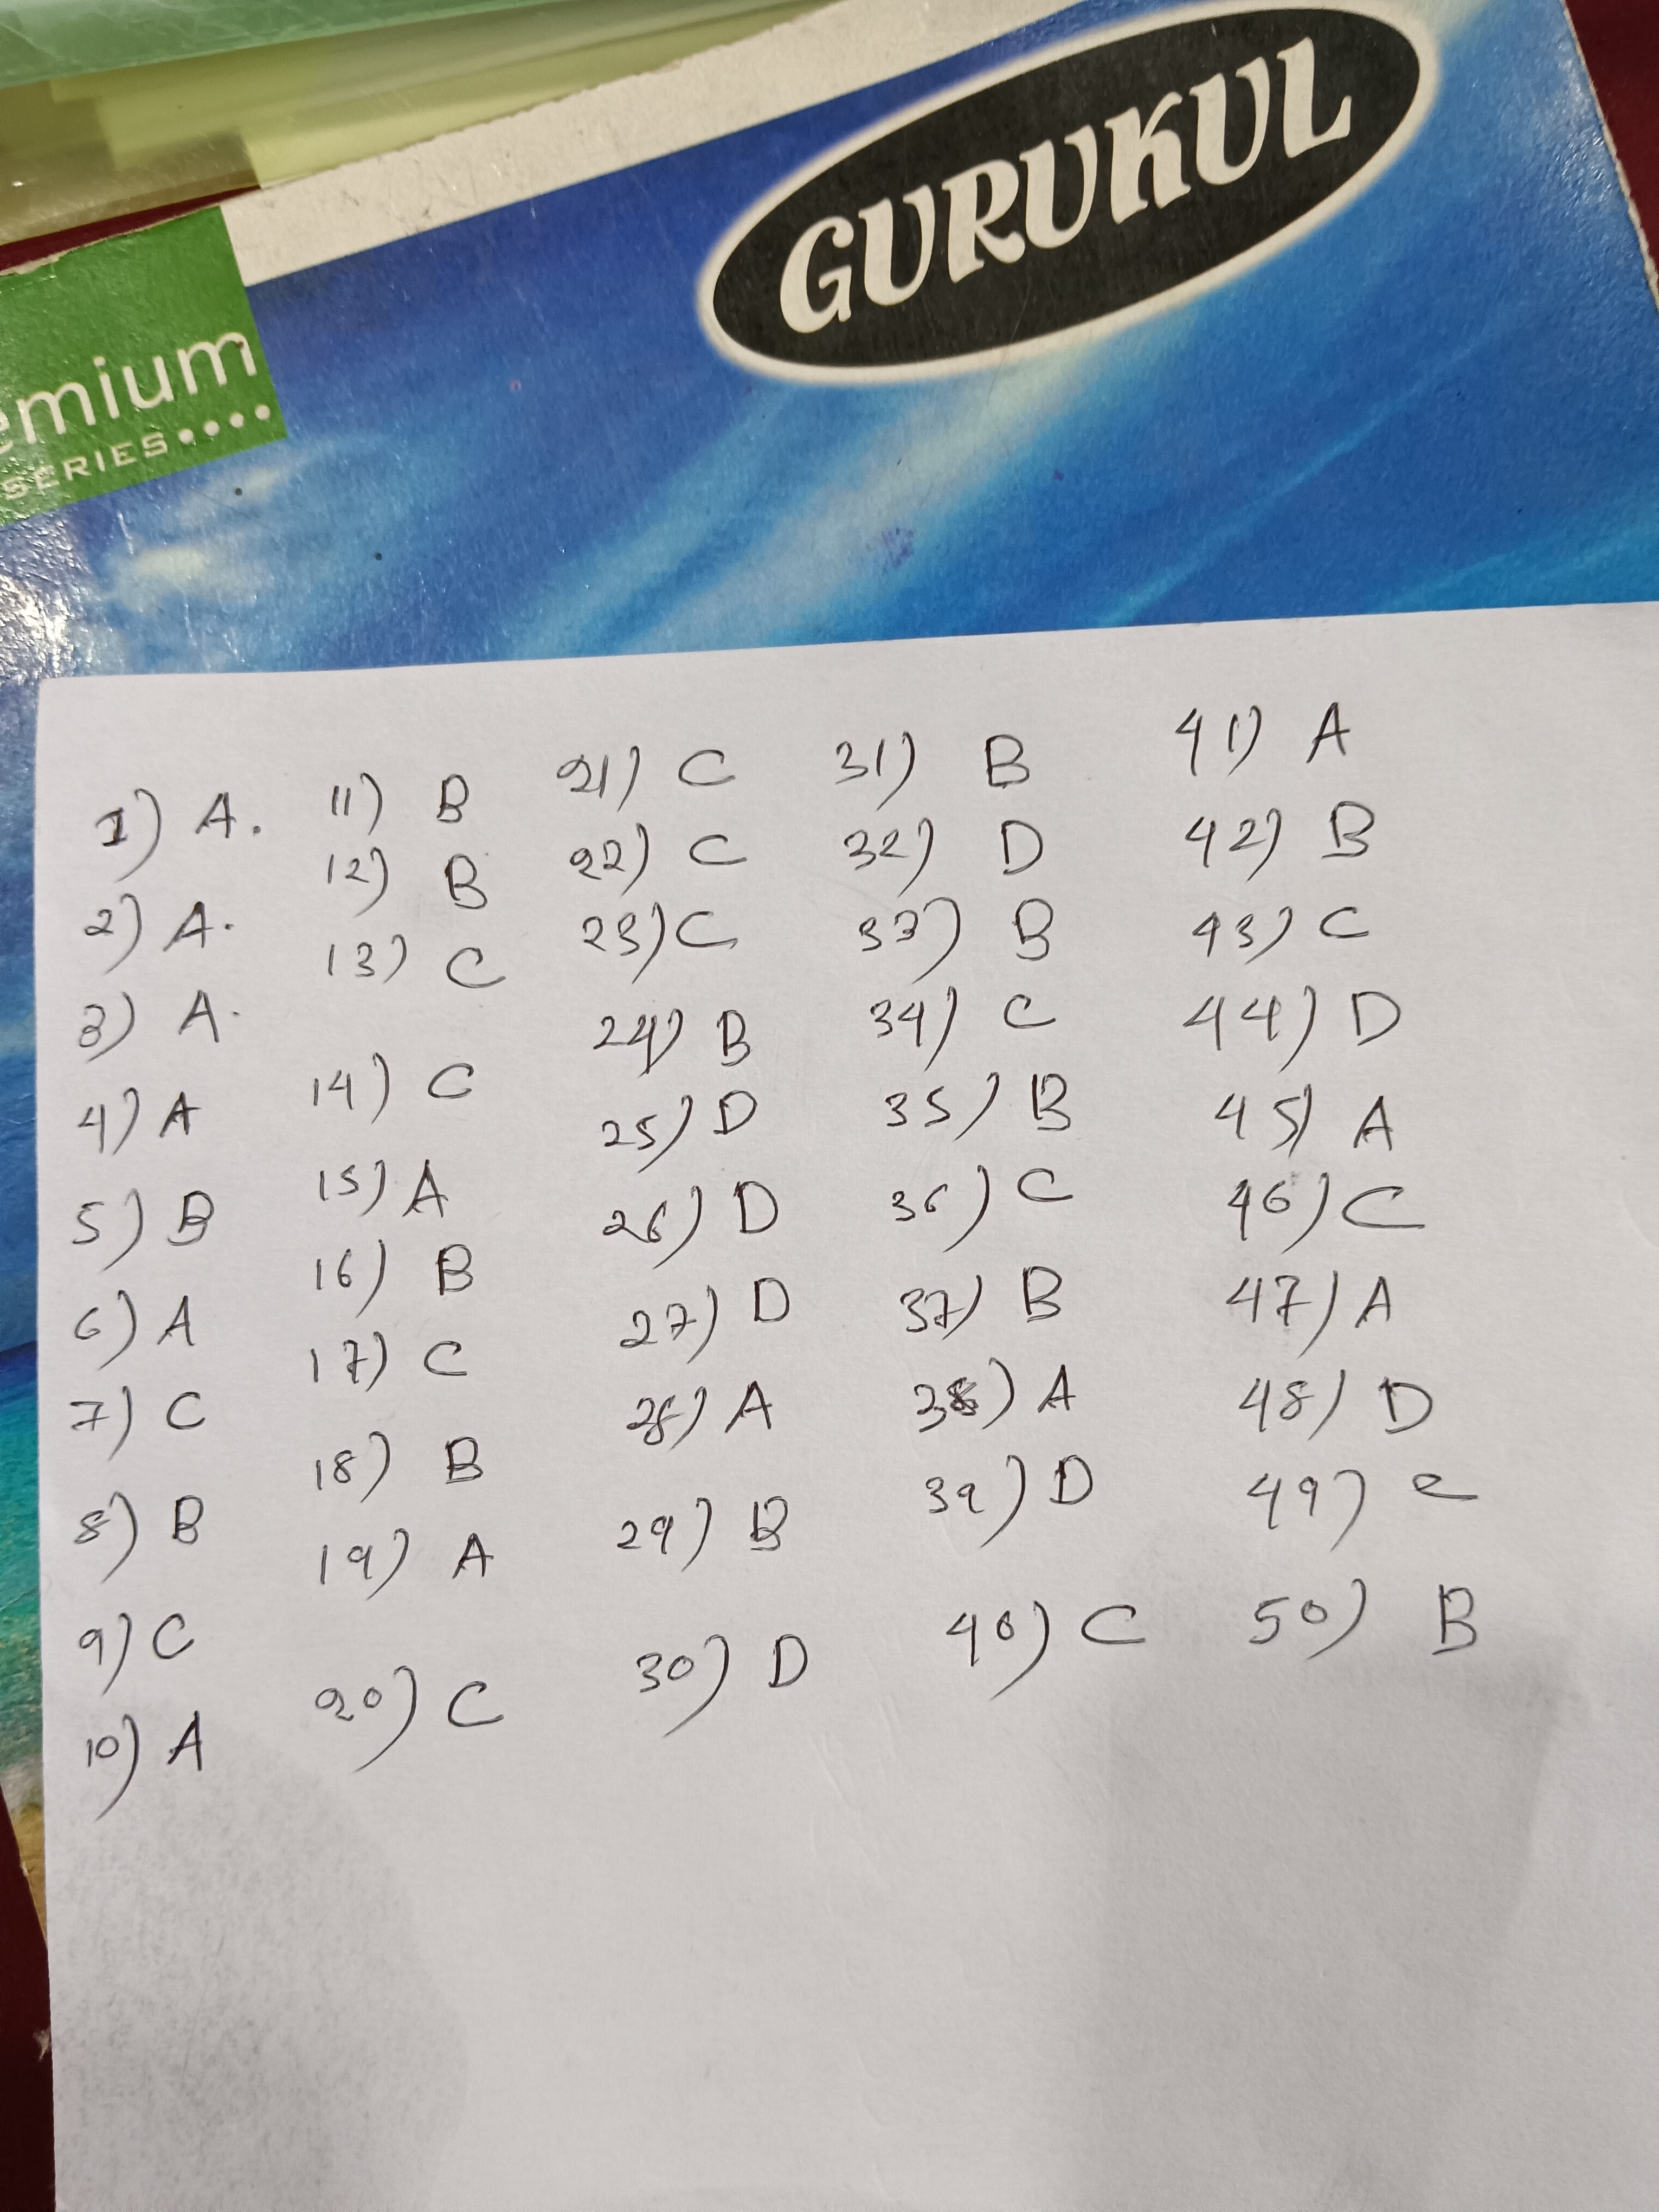 GURUKUL
emium
SERIES....
1) A.
2) A.
3) A.
4) A
5) B
6) A
7) C
8) B
9) C
10) A
11) B
12) B
13) C
14) C
15) A
16) B
17) C
18) B
19) A
20) C
21) C
22) C
23) C
24) B
25) D
26) D
27) D
28) A
29) B
30) D
31) B
32) D
33) B
34) C
35) B
36) C
37) B
38) A
39) D
40) C
41) A
42) B
43) C
44) D
45) A
46) C
47) A
48) D
49) C
50) B